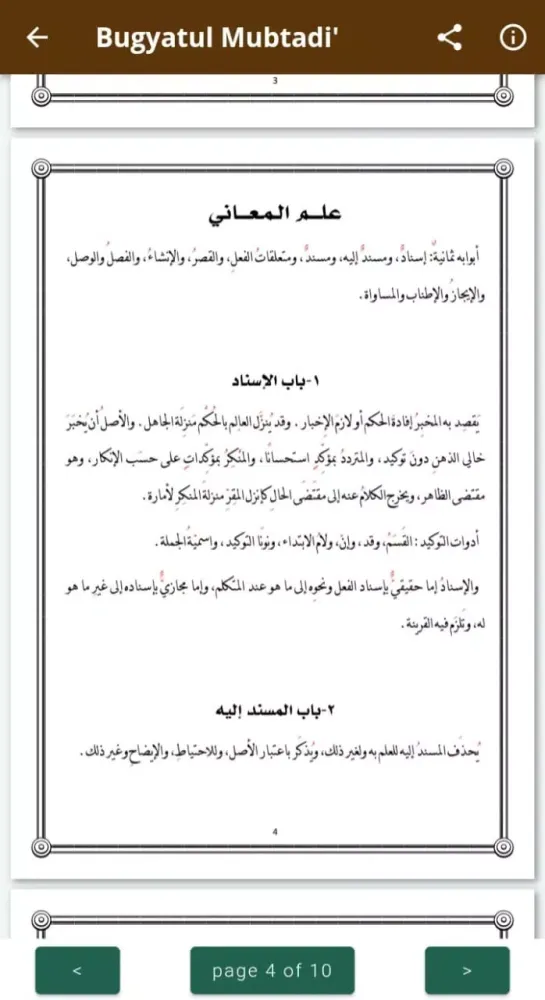 Bugyatul Mubtadi'
3
علم المعاني
أبوابه ثمانيةٌ: إسنادٌ، ومسندٌ إليه، ومسندٌ، ومتعلقاتُ الفعلِ، والقصرُ، والإنشاءُ، والفصلُ والوصل،
والإيجازُ والإطناب والمساواة.
١-باب الإسناد
يَقصِد به المخبرُ إفادةَ الحكم أو لازمَ الإخبار. وقد يُنزَّل العالِم بالحُكم مَنزِلَة الجاهل. والأصل أن يُخبَرَ
خالي الذهنِ دونَ توكيد، والمترددُ بمؤكِّدٍ استحسانًا، والمنكِرُ بمؤكِّداتٍ على حسَب الإنكار، وهو
مقتضى الظاهر، ويَخرج الكلامُ عنه إلى مقتَضَى الحالِ كإنزل المقِرِّ منزلةَ المنكِرِ لأمارة.
أدوات التوكيد: القَسَمُ، وقد، وإنّ، ولامُ الابتداء، ونونَا التوكيد، واسميَّةُ الجملة.
والإسنادُ إما حقيقيٌّ بإسناد الفعل ونحوِه إلى ما هو عند المتكلم، وإما مجازيٌّ بإسناده إلى غيرِ ما هو
له، وتَلزَم فيه القرينة.
٢-باب المسند إليه
يُحذَف المسندُ إليه للعلم به ولغير ذلك، ويُذكَر باعتبار الأصل، وللاحتياطِ، والإيضاحِ وغير ذلك.
4
< page 4 of 10 >